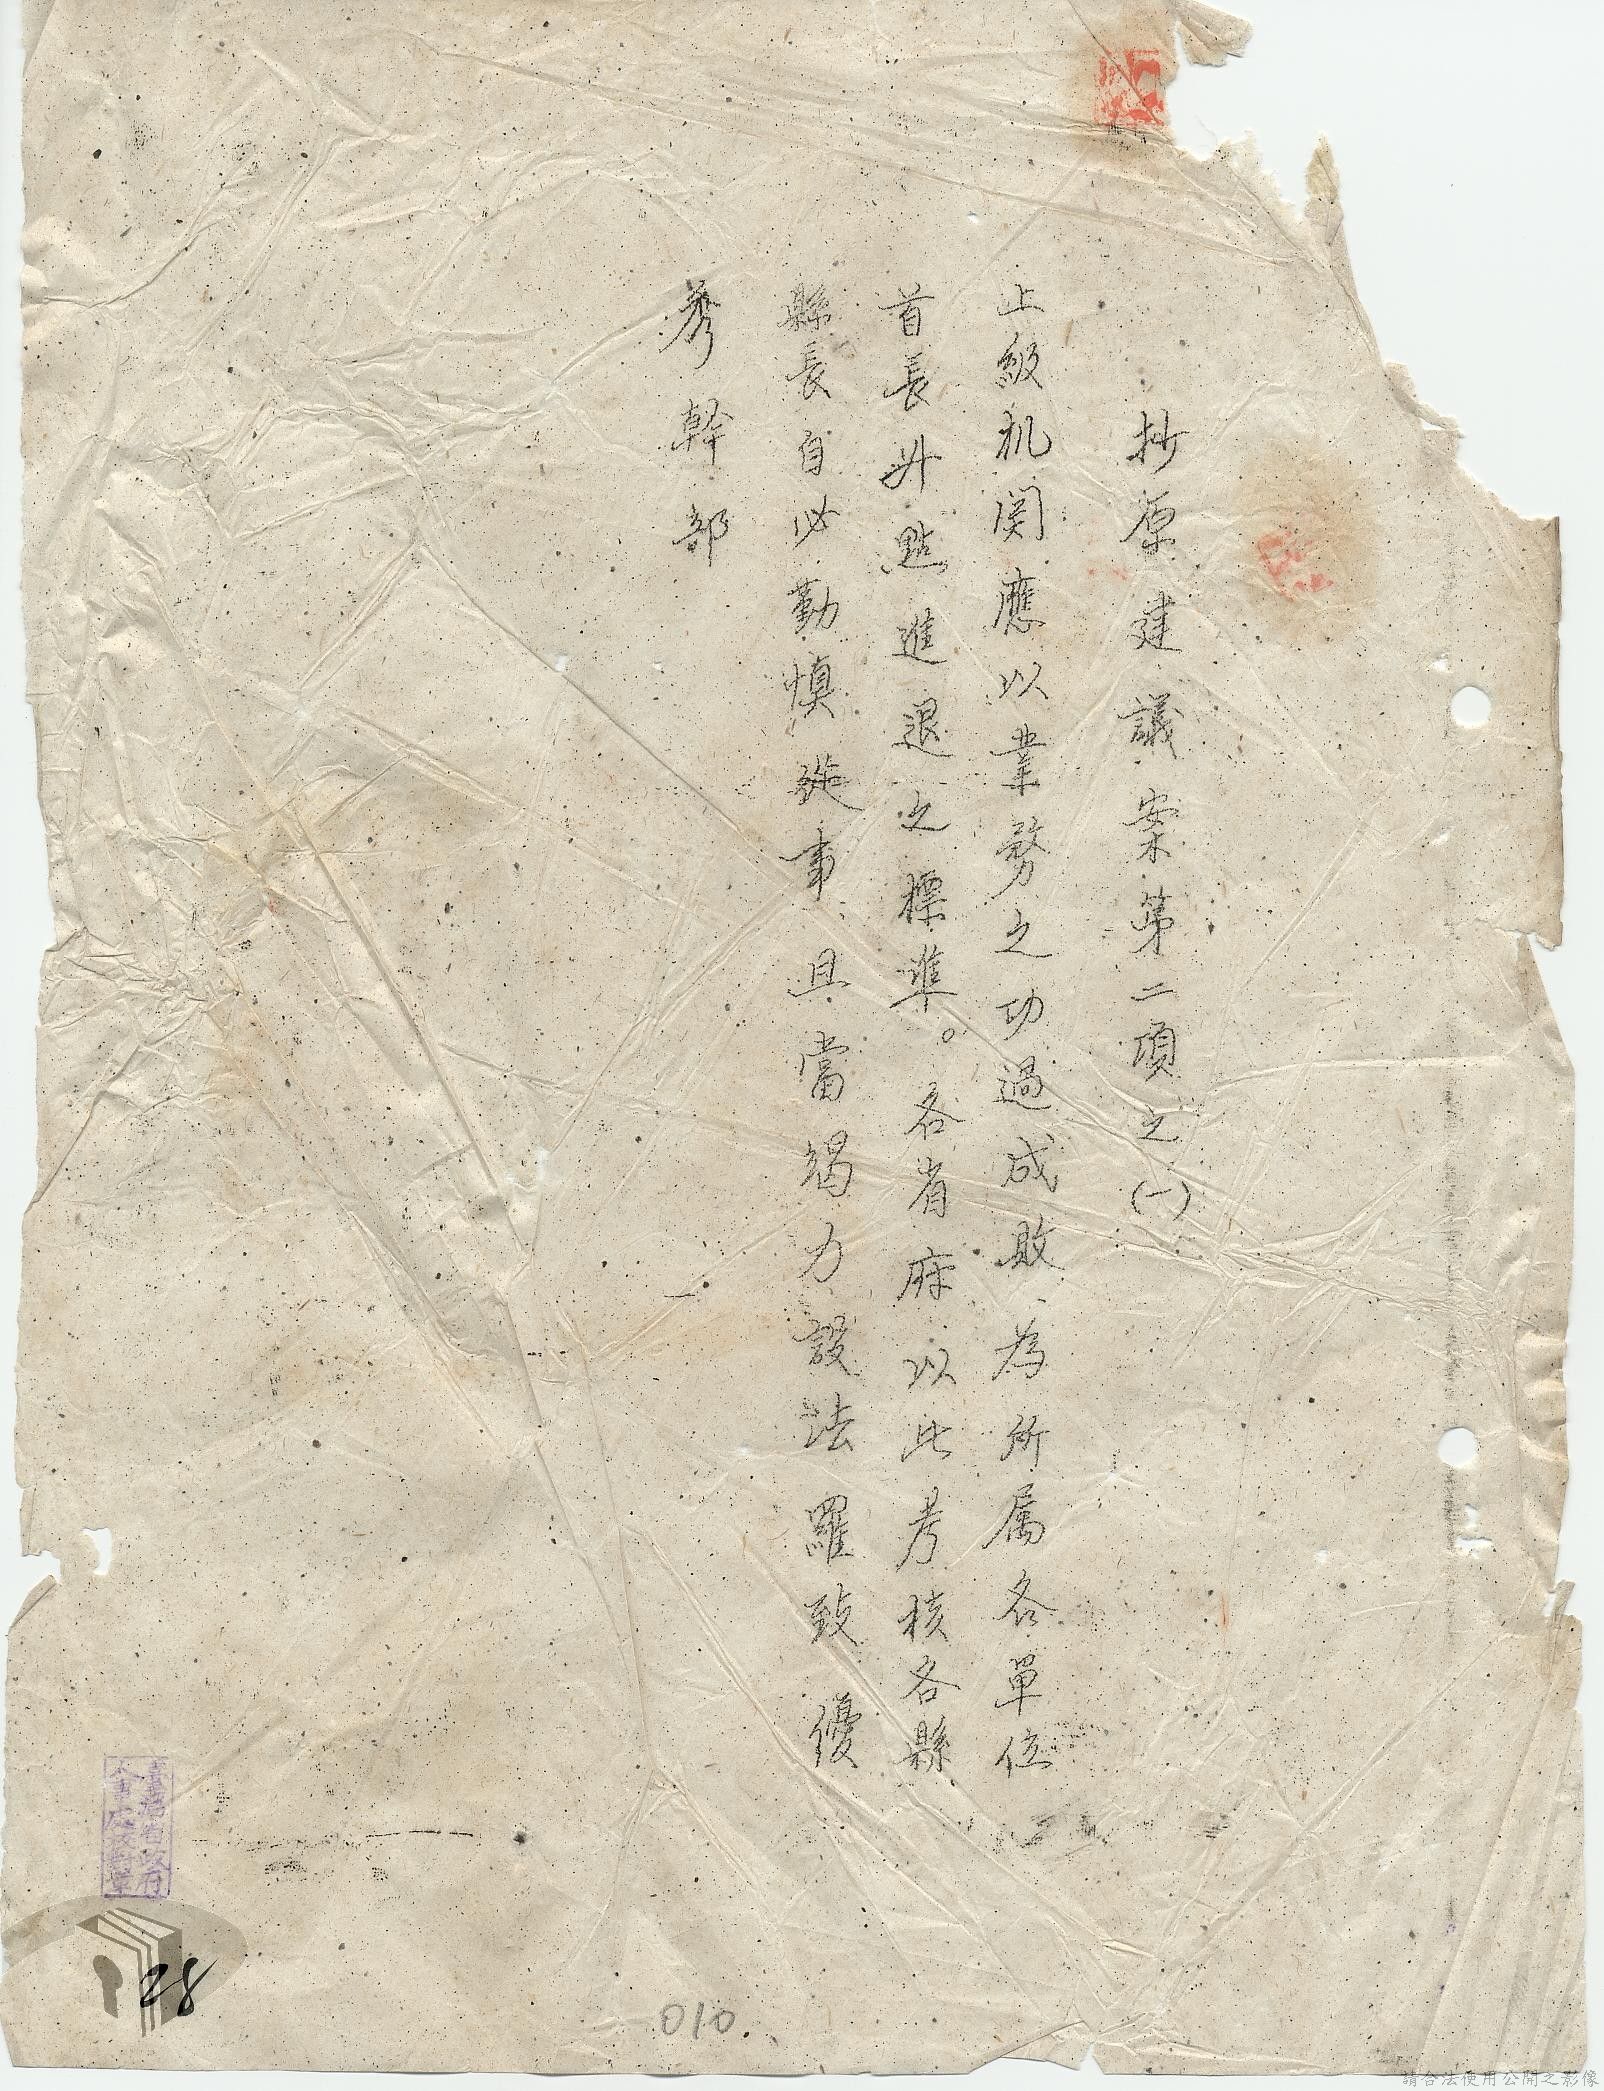 抄原建議案第二項之(一)
上級机関應以業務之功過成敗為所属各單位
首長升點進退之標準。各省府以此考核各縣
縣長自必勤慎從事且當竭力設法羅致優
秀幹部
臺灣省政府
28
010
請合法使用公開之影像